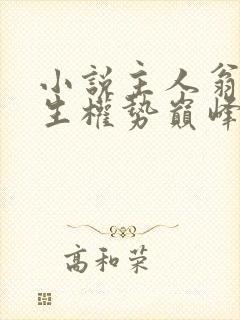 小說主人翁
生權勢巔峰
高和荣